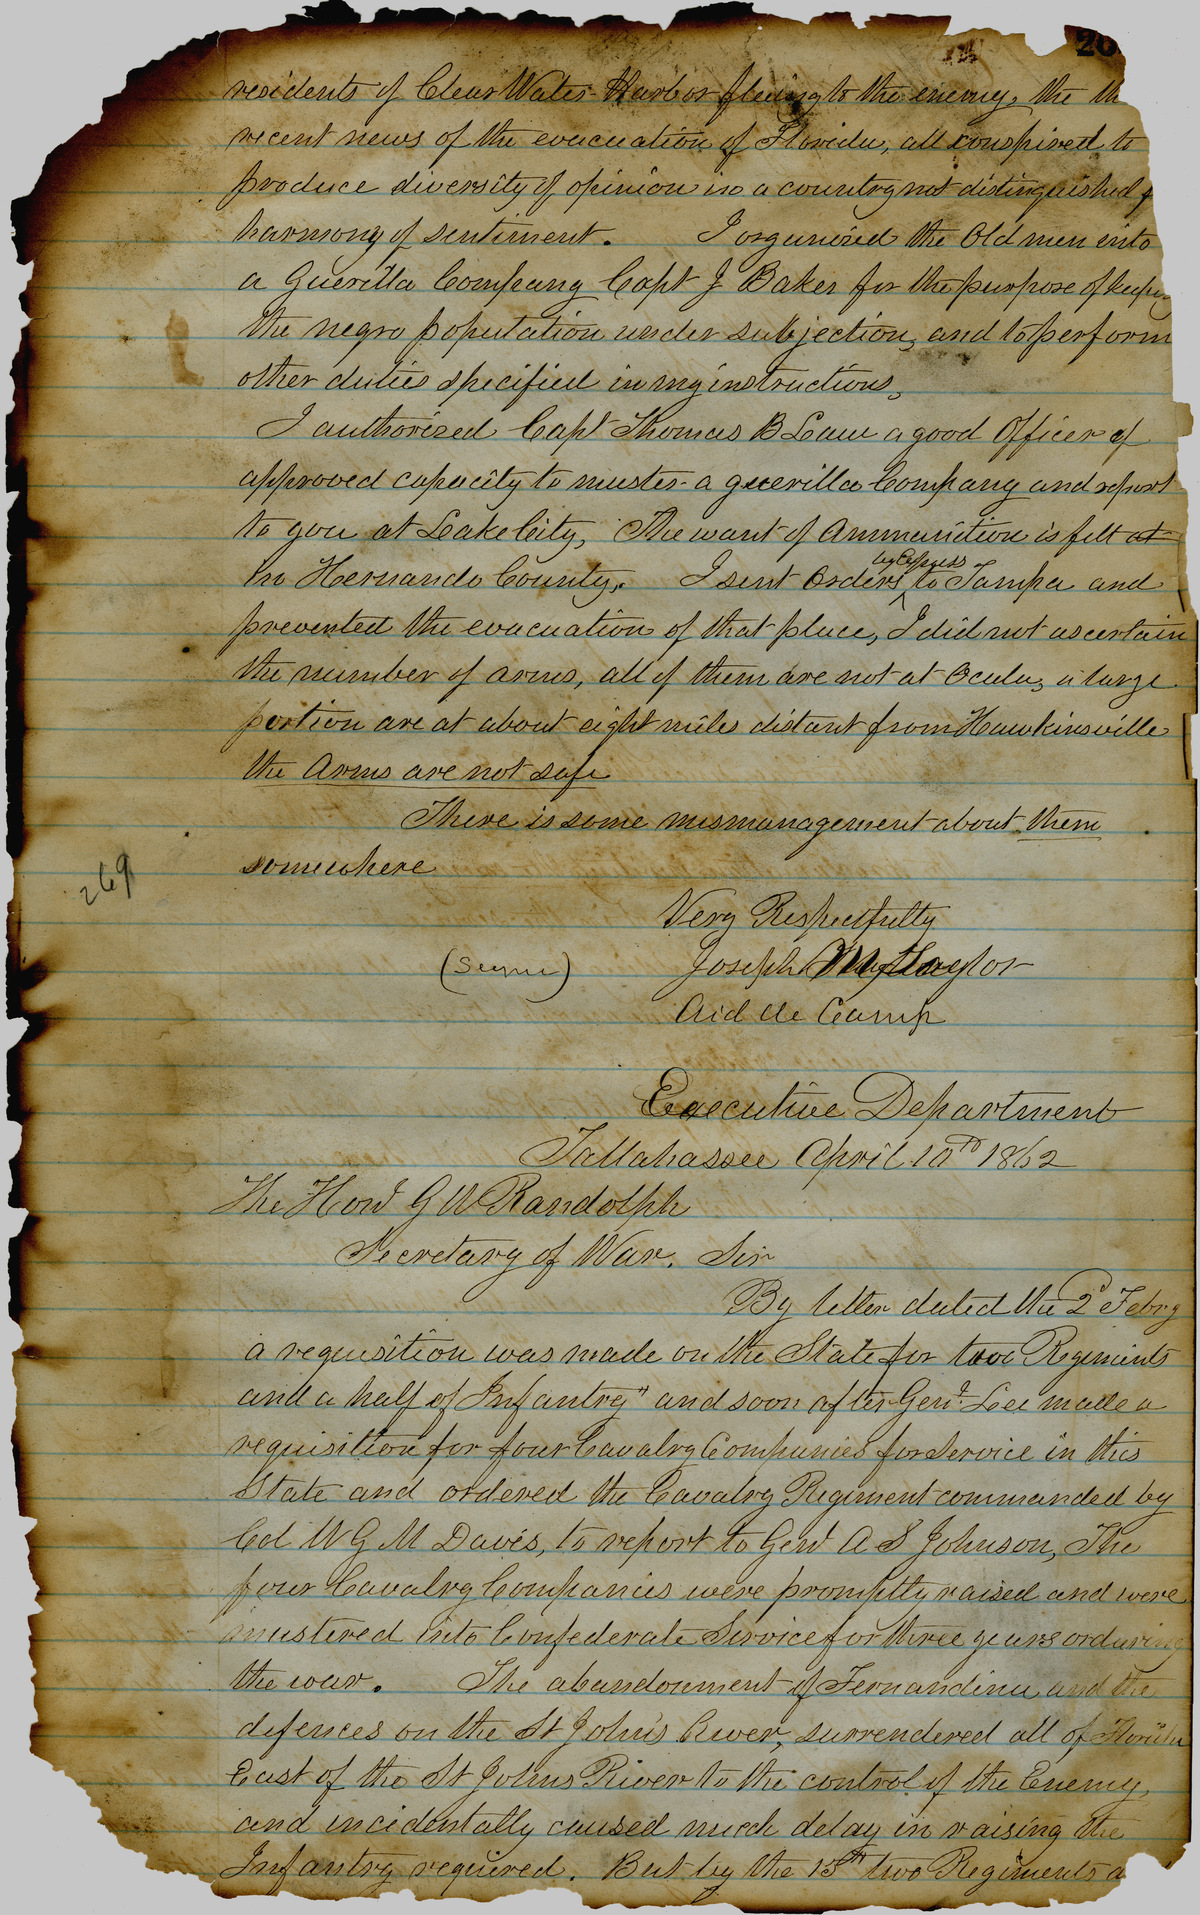 20
residents of Clear Water Harbor fleeing to the enemy, the th
recent news of the evacuation of Florida, all conspired to
produce diversity of opinion in a country not distinguished f
harmony of sentiment. I organized the Old men into
a Guerilla Company Capt J Baker for the purpose of keeping
the negro population under subjection, and to perform
other duties specified in my instructions,
I authorized Capt Thomas B Law a good Officer of
approved capacity to muster a guerilla Company and report
to you at Lake City, The want of Ammunition is felt at
by Express
In Hernando County. I sent Orders to Tampa and
prevented the evacuation of that place, I did not ascertain
the number of arms, all of them are not at Ocala, a large
portion are at about eight miles distant from Hawkinsville
the Arms are not safe
There is some mismanagement about them
somewhere
269
Very Respectfully
Joseph M Taylor
Aid de Camp
Executive Department
Tallahassee April 10th 1862
The Hond G W Randolph
Secretary of War. Sir
By letter dated the 2d Febry
a requisition was made on the State for two Regiments
and a half of Infantry" and soon after Genl Lee made a
requisition for four Cavalry Companies for Service in this
State and ordered the Cavalry Regiment commanded by
Col W G M Davis, to report to Genl A S Johnson, The
four Cavalry Companies were promptly raised and were
mustered into Confederate Service for three years or during
the war. The abandonment of Fernandina and the
defences on the St Johns River, surrendered all of Florida
East of the St Johns River to the control of the Enemy,
and incidentally caused much delay in raising the
Infantry required. But by the 15th two Regiments a